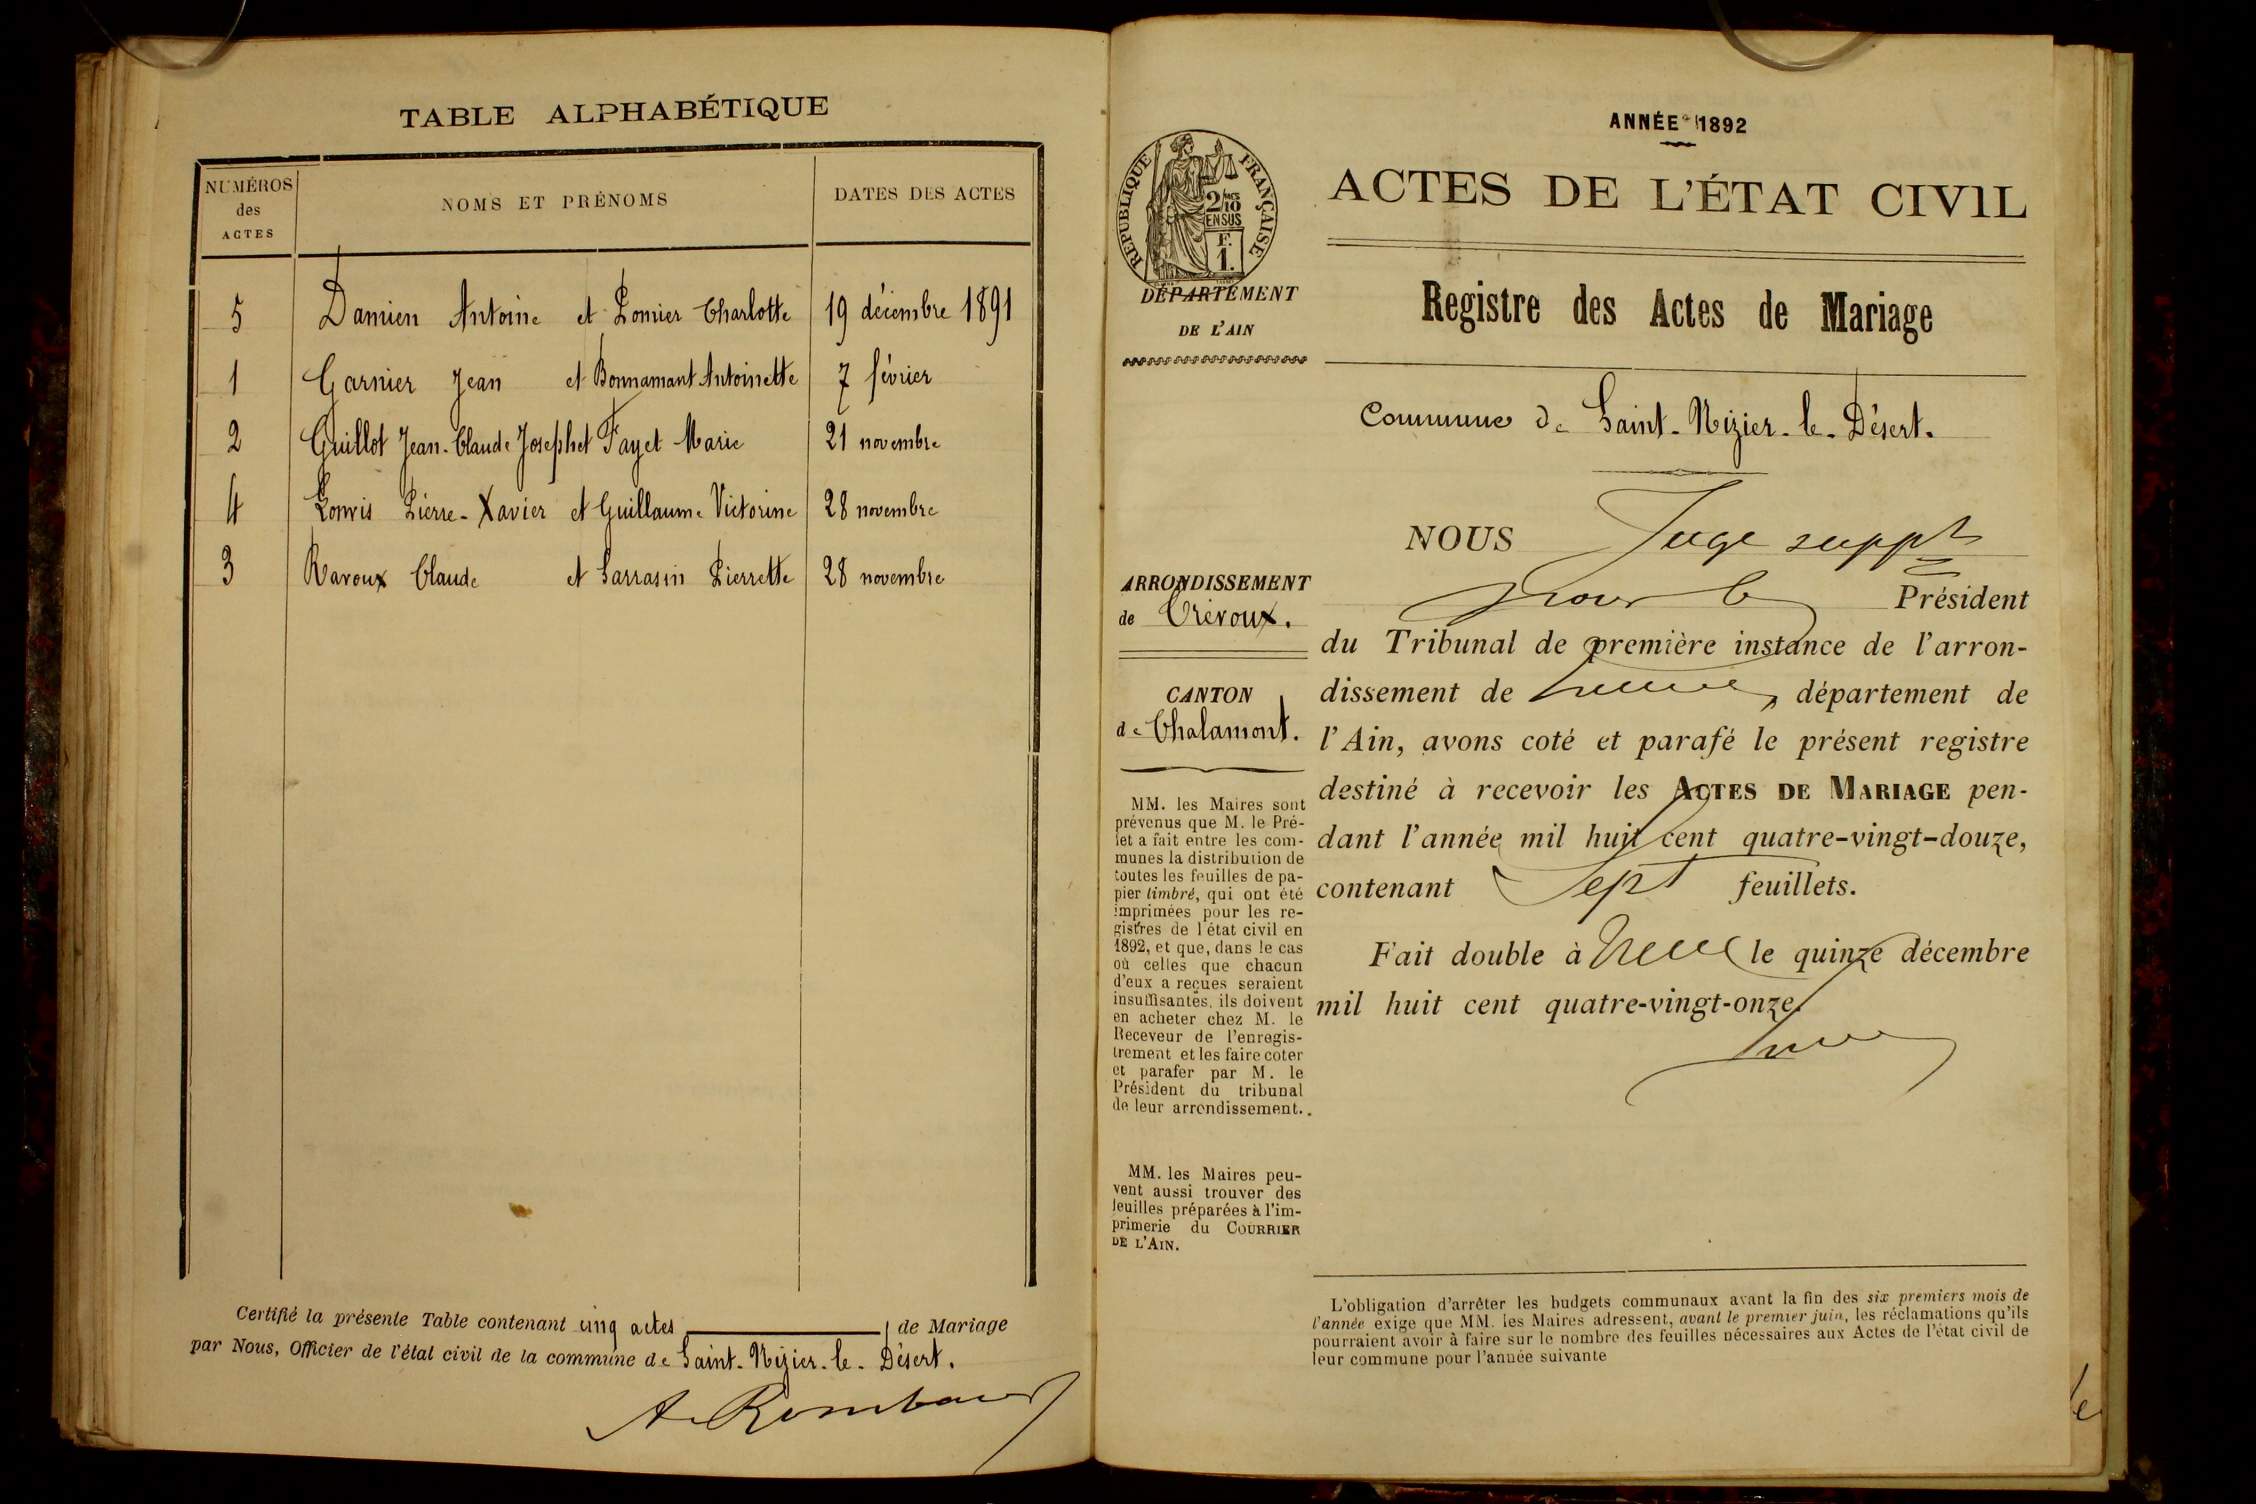 TABLE ALPHABÉTIQUE
NUMÉROS des ACTES NOMS ET PRÉNOMS DATES DES ACTES
5 Damien Antoine et Pomier Charlotte 19 décembre 1891
1 Garnier Jean et Bonnamant Antoinette 7 février
2 Guillot Jean-Claude Joseph et Fayet Marie 21 novembre
4 Pierre-Xavier et Guillaume Victorine 28 novembre
3 Ravoux Claude et Sarrasin Pierrette 28 novembre
Certifié la présente Table contenant cinq actes de Mariage
par Nous, Officier de l'état civil de la commune de Saint-Nizier-le-Désert.
ANNÉE 1892
RÉPUBLIQUE FRANÇAISE
2/10
EN SUS
F.
1.
ACTES DE L'ÉTAT CIVIL
DÉPARTEMENT
DE L'AIN
Registre des Actes de Mariage
Commune de Saint-Nizier-le-Désert.
ARRONDISSEMENT
de Trévoux.
CANTON
de Chalamont.
MM. les Maires sont
prévenus que M. le Pré-
fet a fait entre les com-
munes la distribution de
toutes les feuilles de pa-
pier timbré, qui ont été
imprimées pour les re-
gistres de l'état civil en
1892, et que, dans le cas
où celles que chacun
d'eux a reçues seraient
insuffisantes, ils doivent
en acheter chez M. le
Receveur de l'enregis-
trement et les faire coter
et parafer par M. le
Président du tribunal
de leur arrondissement.
MM. les Maires peu-
vent aussi trouver des
feuilles préparées à l'im-
primerie du COURRIER
DE L'AIN.
NOUS Juge suppt
pour le Président
du Tribunal de première instance de l'arron-
dissement de Trévoux, département de
l'Ain, avons coté et parafé le présent registre
destiné à recevoir les ACTES DE MARIAGE pen-
dant l'année mil huit cent quatre-vingt-douze,
contenant Sept feuillets.
Fait double à Trévoux le quinze décembre
mil huit cent quatre-vingt-onze.
L'obligation d'arrêter les budgets communaux avant la fin des six premiers mois de
l'année exige que MM. les Maires adressent, avant le premier juin, les réclamations qu'ils
pourraient avoir à faire sur le nombre des feuilles nécessaires aux Actes de l'état civil de
leur commune pour l'année suivante